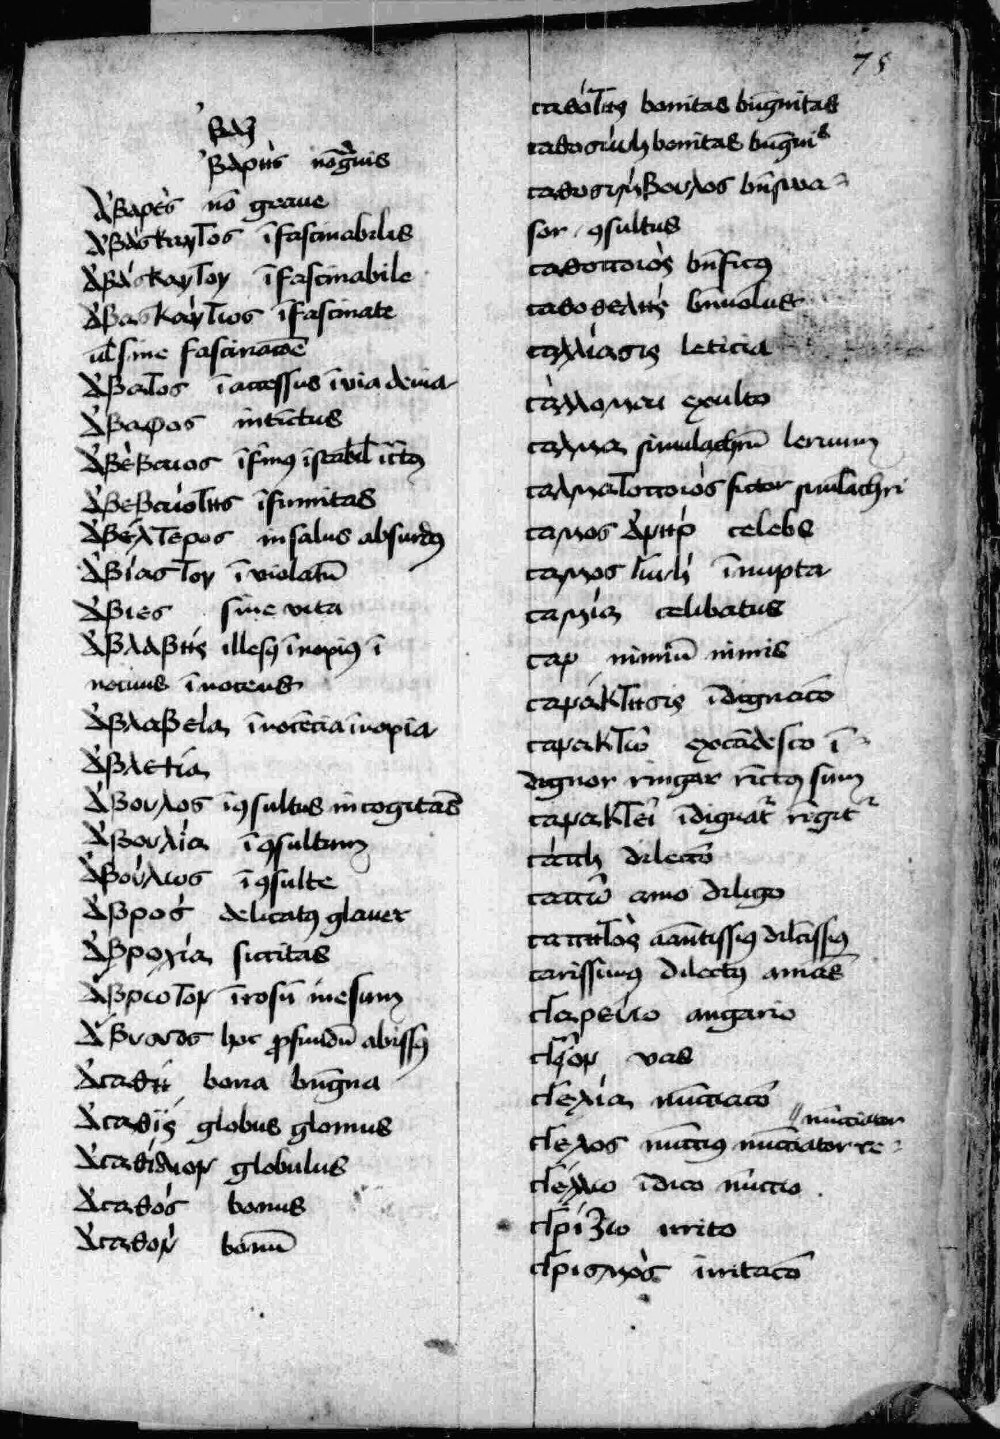 75
ἀβαξ
ἀβαρὴς nō gͣuis
ἀβαρὲς nō graue
ἀβάσκαντος īfascinabilis
ἀβάσκαντον īfascinabile
ἀβασκάντως īfascinate
ul' sine fascinatōe
ἄβατος īaccessus īuia deuia
ἄβαφος intīctus
ἀβέβαιος īfirmꝰ īstabil' īc̄tꝰ
ἀβεβαιότης īfirmitas
ἀβέλτερος insalus absurdꝰ
ἀβίαστον īuiolatū
ἄβιες sine uita
ἀβλαβὴς illesꝰ īnopiꝰ ī
nocuus īnocens
ἀβλαβεία īnocētia īnopia
ἀβλετία
ἄβουλος īꝯsultus incogitās
ἀβουλία īꝯsultum
ἀβούλως īꝯsulte
ἁβρὸς delicatꝰ glauer
ἀβροχία siccitas
ἄβρωτον īrosū inesum
ἄβυσσος hec ꝓfundū abissꝰ
ἀγαθὴ bona bn̄igna
ἀγαθὶς globus glomus
ἀγαθίδιον globulus
ἀγαθὸς bonus
ἀγαθὸν bonū
γαθότης bonitas bn̄ignitas
γαθοσύνη bonitas bn̄igni^s
γαθοσύμβουλος bn̄sua⸗
sor ꝯsultus
γαθοποιὸς bn̄ficꝰ
γαθοθελὴς bn̄uolus
γαλλίασις leticia
γάλλομαι exulto
γαλμα simulachrū lenum
γαλματοποιὸς fictor simlachri
γαμος ἀνὴρ celebs
γαμος γυνὴ īnupta
γαμία celibatus
γαν nimiū nimis
γανάκτησις īdignatō
γανακτῶ excādesco ī⸗
dignor ringar rīctꝰ sum
γανακτεῖ īdignat͛ rīgit͛
γάπη dilectō
γαπῶ amo diligo
γαπητὸς amātissꝰ dilc̄tissꝰ
carissimꝰ dilectꝰ amās
γγαρεύω angario
γγεῖον uas
γγελία nūctiatō
"nūctiator
γγελος nūctius nūctiator re⸗
γγέλλω īdico nūctio
γγρίζω irrito
γγρισμὸς irritatō